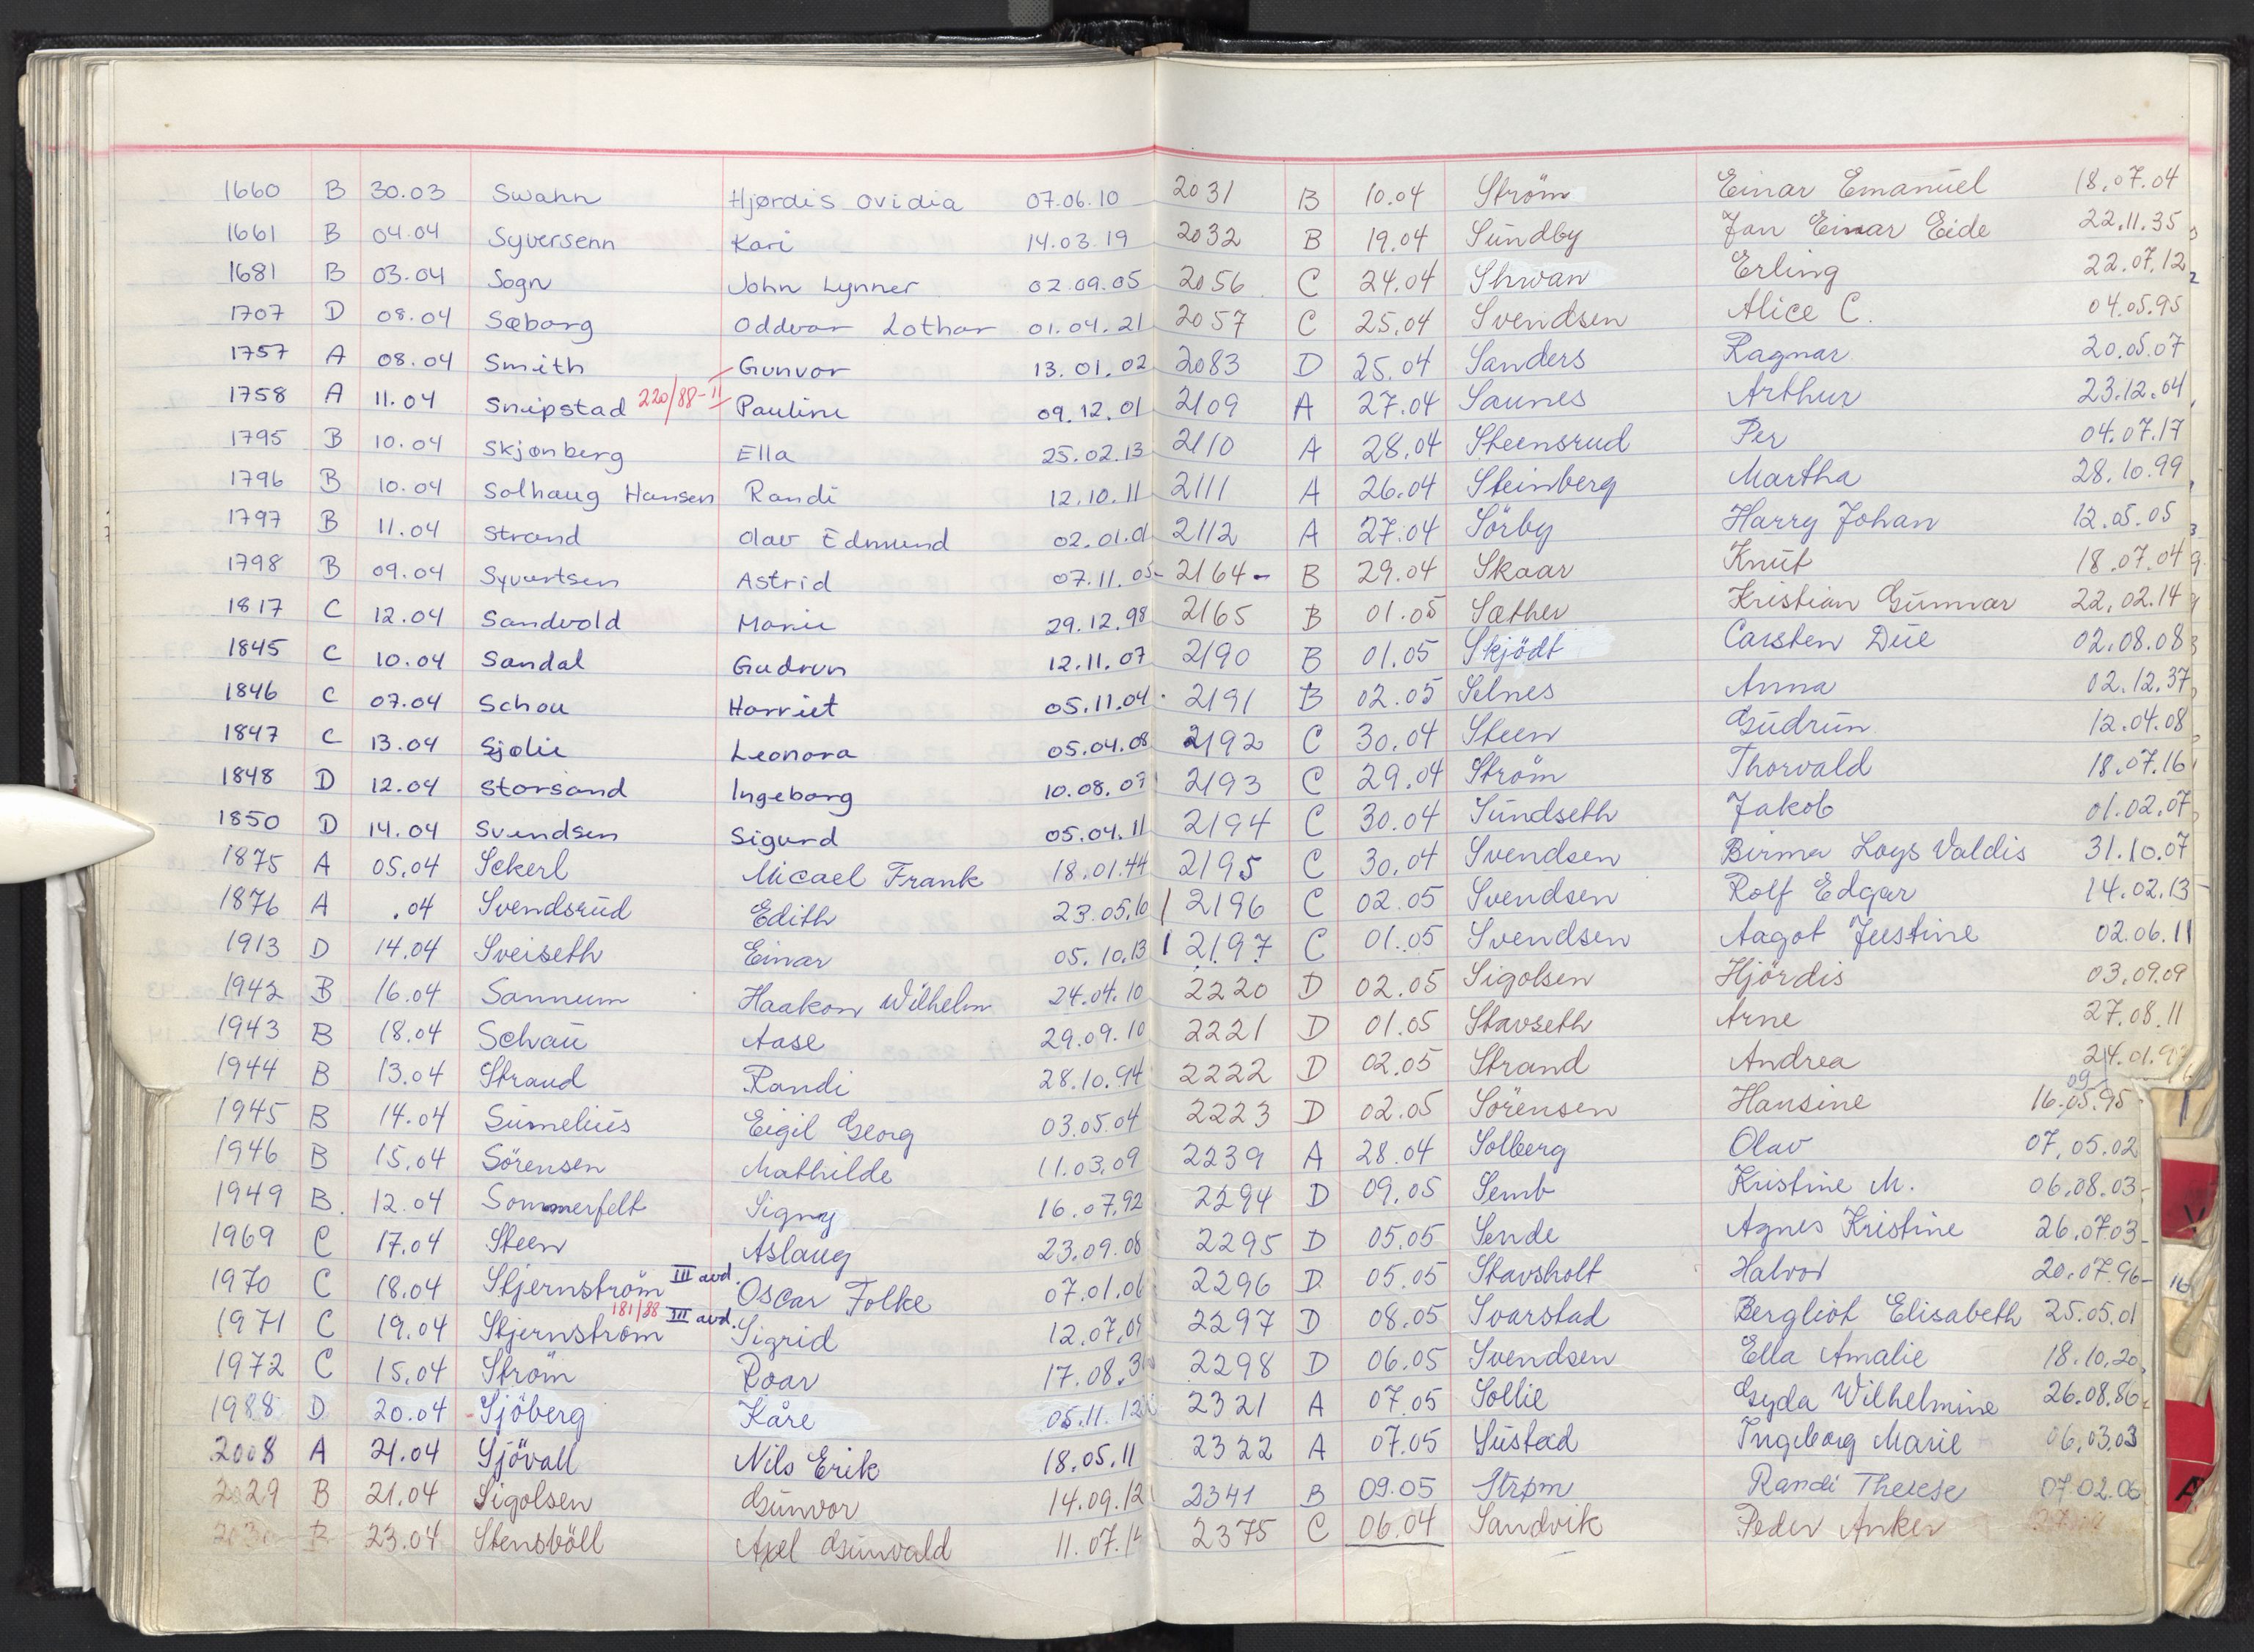 1660 B 30.03 Swahn Hjørdis Ovidia 07.06.10
1661 B 04.04 Syversenn Kari 14.03.19
1681 B 03.04 Sogn John Lynner 02.09.05
1707 D 08.04 Sæborg Oddvar Lothar 01.04.21
1757 A 08.04 Smith Gunvor 13.01.02
1758 A 11.04 Snipstad 220/88-II Pauline 09.12.01
1795 B 10.04 Skjønberg Ella 25.02.13
1796 B 10.04 Solhaug Hansen Randi 12.10.11
1797 B 11.04 Strand Olav Edmund 02.01.01
1798 B 09.04 Syvertsen Astrid 07.11.05
1817 C 12.04 Sandvold Marie 29.12.98
1845 C 10.04 Sandal Gudrun 12.11.07
1846 C 07.04 Schou Harriet 05.11.04
1847 C 13.04 Sjølie Leonora 05.04.08
1848 D 12.04 Storsand Ingeborg 10.08.07
1850 D 14.04 Svendsen Sigurd 05.04.11
1875 A 05.04 Sekerl Micael Frank 18.01.44
1876 A .04 Svendsrud Edith 23.05.10
1913 D 14.04 Sveiseth Einar 05.10.13
1942 B 16.04 Sannum Haakon Wilhelm 24.04.10
1943 B 18.04 Schau Aase 29.09.10
1944 B 13.04 Strand Randi 28.10.94
1945 B 14.04 Sumelius Eigil Georg 03.05.04
1946 B 15.04 Sörensen Mathilde 11.03.09
1949 B. 12.04 Sommerfelt Signy 16.07.92
1969 C 17.04 Steen Aslaug 23.09.08
1970 C 18.04 Stjernström III avd. Oscar Folke 07.01.06
1971 C 19.04 Stjernström 181/88 III avd. Sigrid 12.07.09
1972 C 15.04 Ström Roar 17.08.3
1988 D 20.04 Sjöberg Kåre 05.11.12
2008 A 21.04 Sjövall Nils Erik 18.05.11
2029 B 21.04 Sigolsen Gunvor 14.09.12
2030 B 23.04 Stensböll Axel Gunvald 11.07.1
2031 B 10.04 Ström Einar Emanuel 18.07.04
2032 B 19.04 Sundby Jan Einar Eide 22.11.35
2056 C 24.04 Shwan Erling 22.07.12
2057 C 25.04 Svendsen Alice C. 04.05.95
2083 D 25.04 Sanders Ragnar 20.05.07
2109 A 27.04 Saunes Arthur 23.12.04
2110 A 28.04 Steensrud Per 04.07.17
2111 A 26.04 Steinberg Martha 28.10.99
2112 A 27.04 Sörby Harry Johan 12.05.05
2164 - B 29.04 Skaar Knut 18.07.04
2165 B 01.05 Sæther Kristian Gunnar 22.02.14
2190 B 01.05 Skjödt Carsten Due 02.08.08
2191 B 02.05 Selnes Anna 02.12.37
2192 C 30.04 Steen Gudrun 12.04.08
2193 C 29.04 Ström Thorvald 18.07.16
2194 C 30.04 Sundseth Jakob 01.02.07
2195 C 30.04 Svendsen Birma Loys Valdis 31.10.07
2196 C 02.05 Svendsen Rolf Edgar 14.02.13
2197 C 01.05 Svendsen Aagot Justine 02.06.11
2220 D 02.05 Sigolsen Hjördis 03.09.09
2221 D 01.05 Stavseth Arne 27.08.11
2222 D 02.05 Strand Andrea 24.01.9
2223 D 02.05 Sörensen Hansine 16.05.95 09
2239 A 28.04 Solberg Olav 07.05.02
2294 D 09.05 Semb Kristine M. 06.08.03
2295 D 05.05 Sende Agnes Kristine 26.07.03
2296 D 05.05 Stavsholt Halvor 20.07.96
2297 D 08.05 Svarstad Bergliot Elisabeth 25.05.01
2298 D 06.05 Svendsen Ella Amalie 18.10.20
2321 A 07.05 Sollie Gyda Wilhelmine 26.08.86
2322 A 07.05 Sustad Ingeborg Marie 06.03.03
2341 B 09.05 Strøm Randi Therese 07.02.06
2375 C 06.04 Sandvik Peder Anker